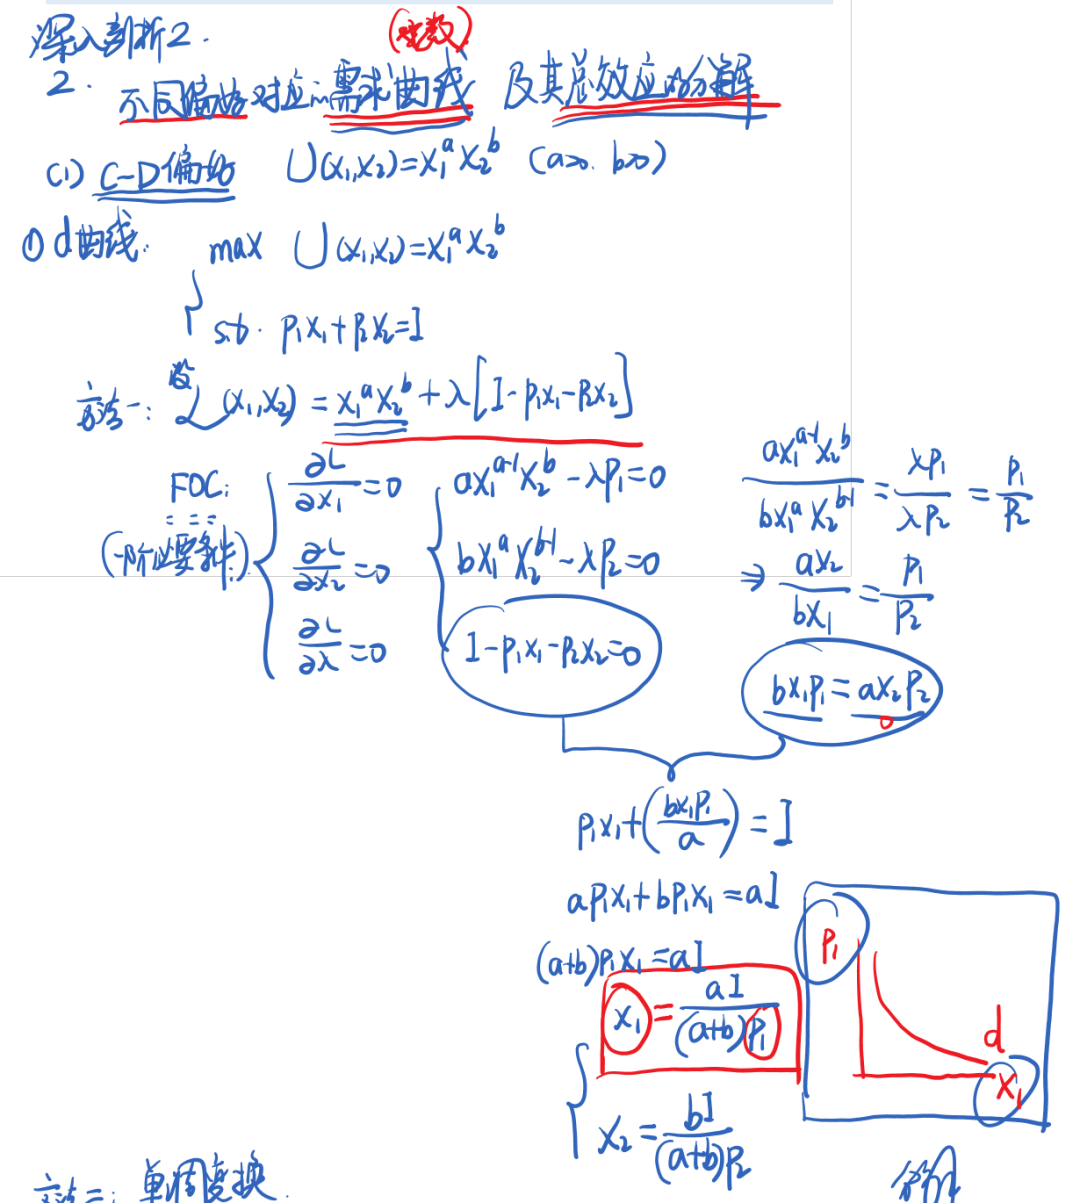 深入剖析2.
(函数)
2. 不同偏好对应的需求曲线 及其总效应的分解
(1) C-D偏好 U(x₁,x₂)=x₁ᵃx₂ᵇ (a>0. b>0)
① d曲线. max U(x₁,x₂)=x₁ᵃx₂ᵇ
s.t. p₁x₁+p₂x₂=I
方法一: 设 L(x₁,x₂)=x₁ᵃx₂ᵇ+λ[I-p₁x₁-p₂x₂]
FOC:
(一阶必要条件)
∂L/∂x₁=0 ax₁ᵃ⁻¹x₂ᵇ-λp₁=0
∂L/∂x₂=0 bx₁ᵃx₂ᵇ⁻¹-λp₂=0
∂L/∂λ=0 I-p₁x₁-p₂x₂=0
ax₁ᵃ⁻¹x₂ᵇ/bx₁ᵃx₂ᵇ⁻¹=λp₁/λp₂=p₁/p₂
⇒ ax₂/bx₁=p₁/p₂
bx₁p₁=ax₂p₂
p₁x₁+(bx₁p₁/a)=I
ap₁x₁+bp₁x₁=aI
(a+b)p₁x₁=aI
x₁=aI/(a+b)p₁
x₂=bI/(a+b)p₂
p₁
d
x₁
方法二: 单调变换.